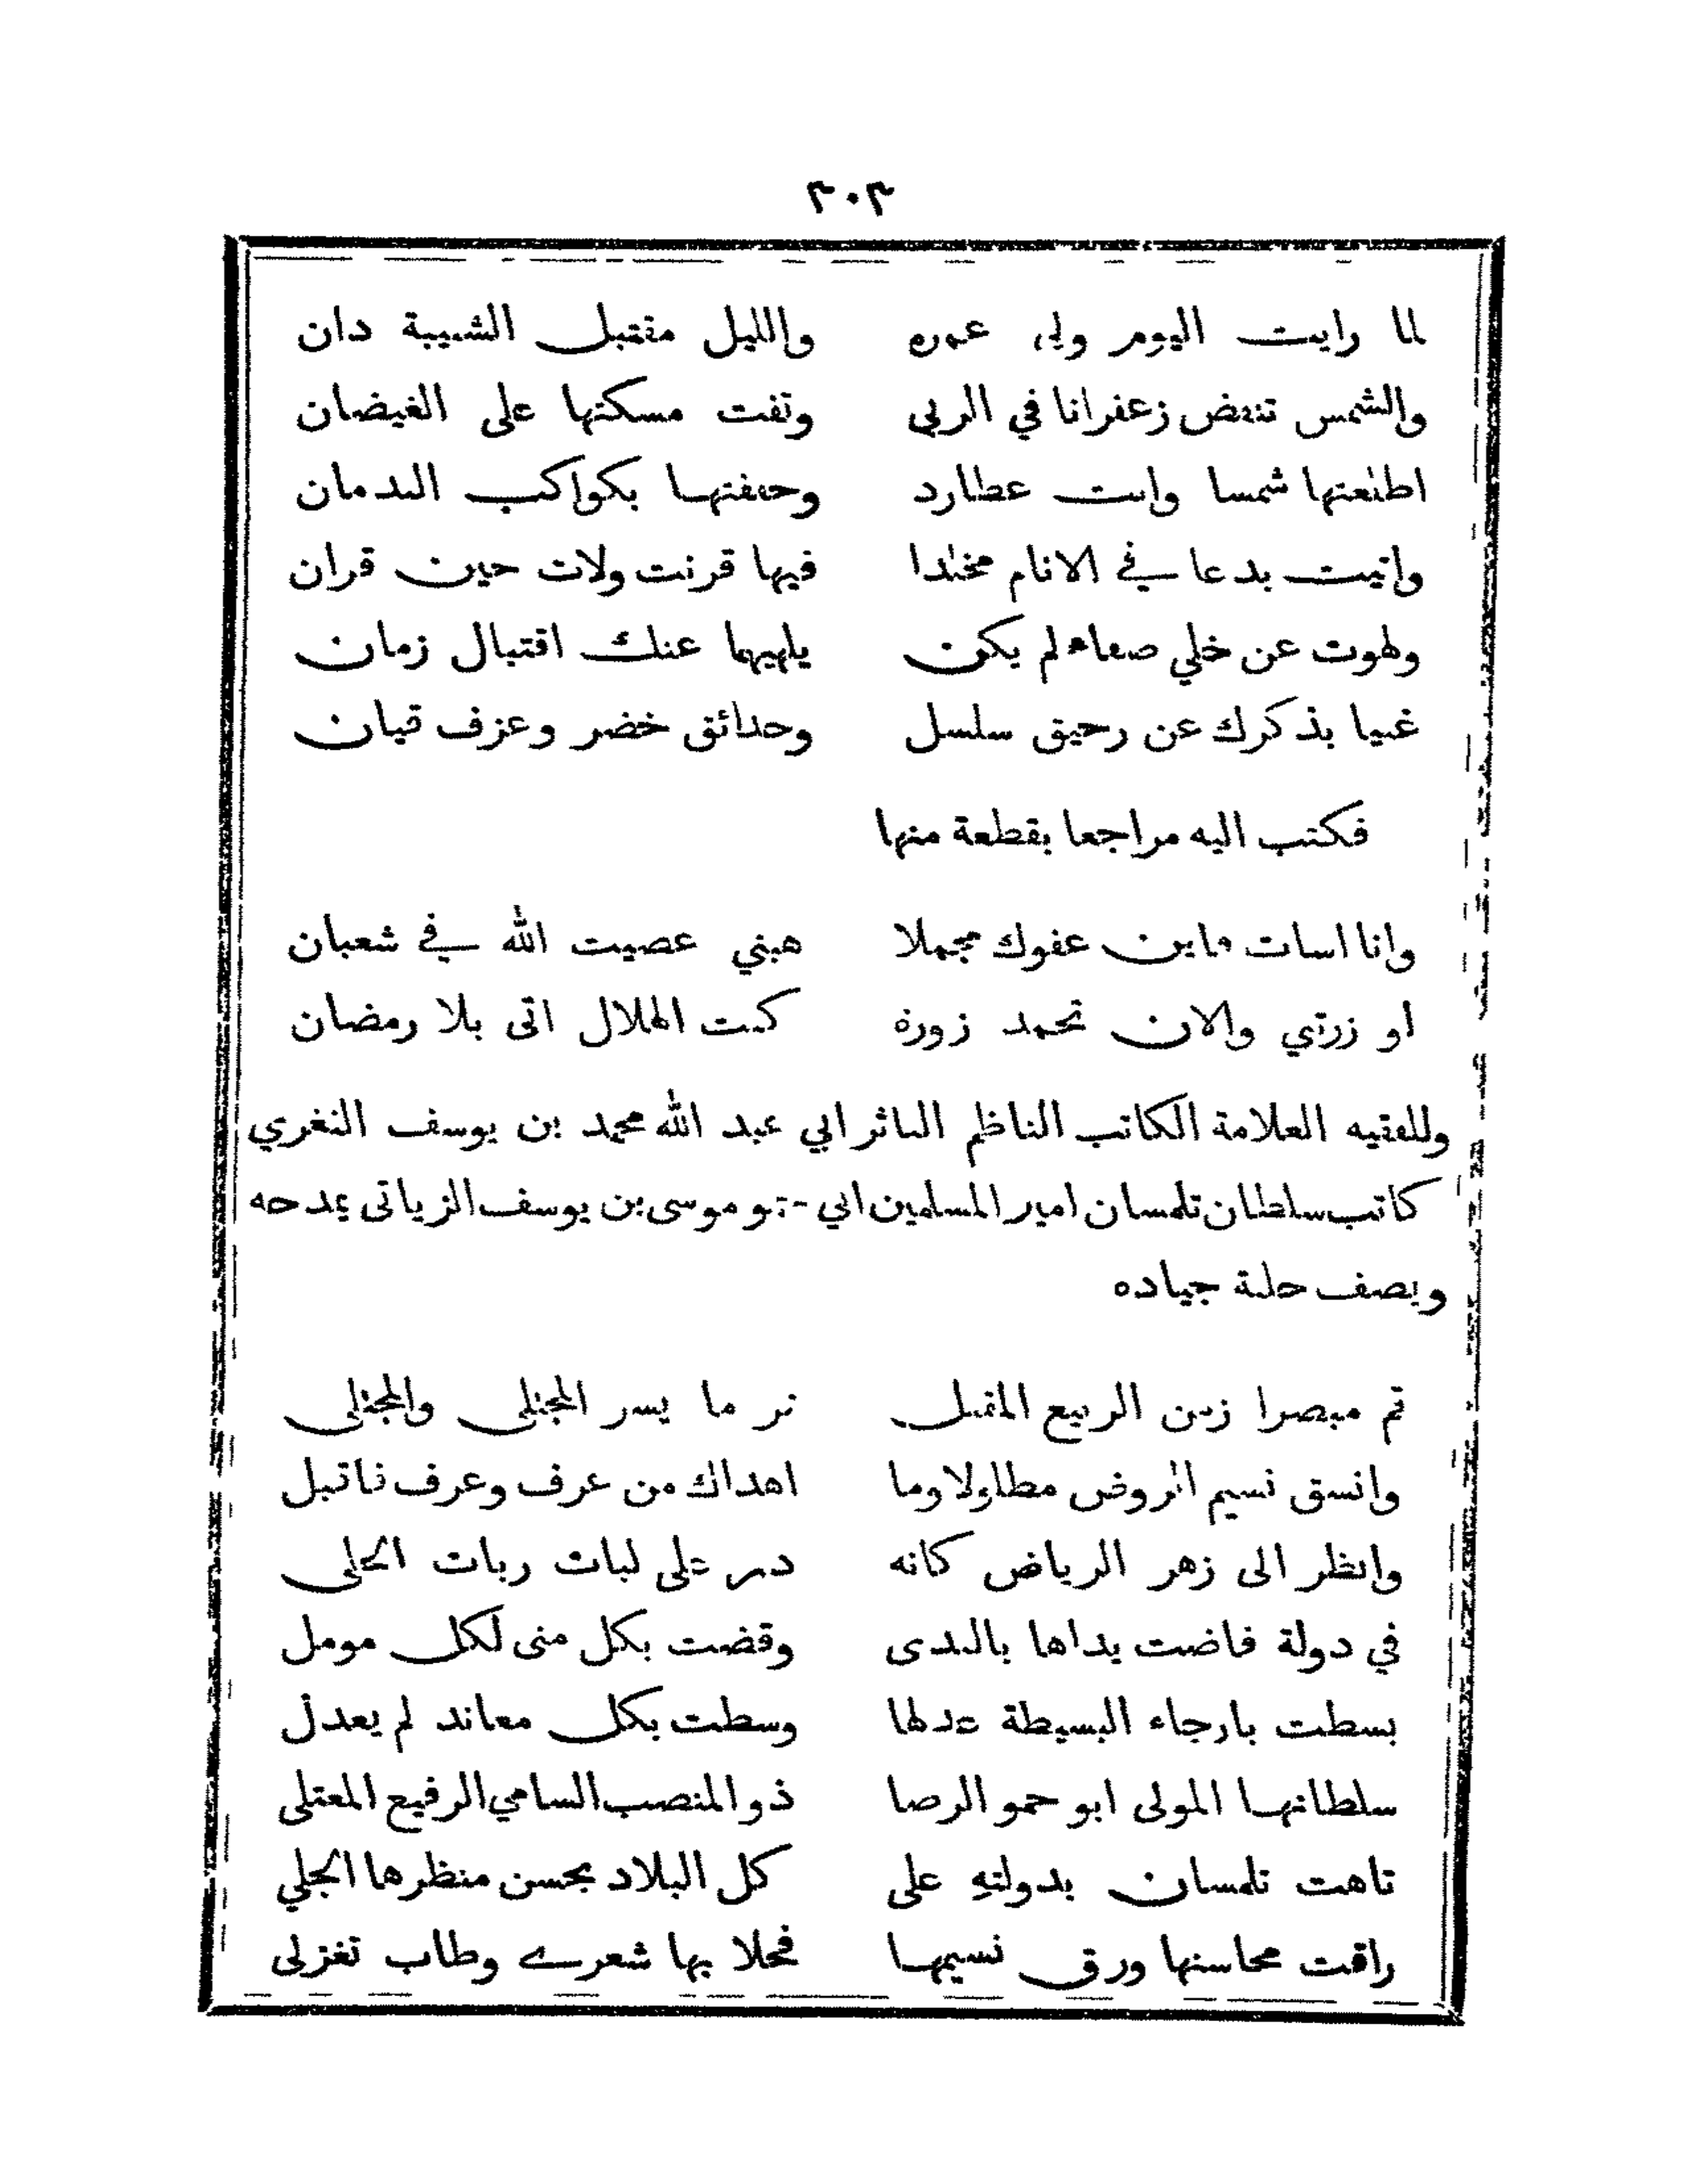 ٣٠٣
لما رايت اليوم ولى عمره والليل مقتبل الشبيبة دان
والشمس تنفض زعفرانا في الربى وتفت مسكتها على الغيضان
اطلعتها شمسا وانت عطارد وحففتها بكواكب الندمان
واتيت بدعا في الانام مخلدا فيها قرنت ولات حين قران
ولهوت عن خلي صفاء لم يكن يلهيهما عنك اقتبال زمان
غنيا بذكرك عن رحيق سلسل وحدائق خضر وعزف قيان
فكتب اليه مراجعا بقطعة منها
وانا اسات فاين عفوك مجملا هبني عصيت الله في شعبان
او زرتني والان تحمد زورة كنت الهلال اتى بلا رمضان
وللفقيه العلامة الكاتب الناظم الناثر ابي عبد الله محمد بن يوسف الثغري
كاتب سلطان تلمسان امير المسلمين ابي حمو موسى بن يوسف الزياتى يمدحه
ويصف حلبة جياده
قم مبصرا زمن الربيع المقبل تر ما يسر المجتلى والمجتلى
وانشق نسيم الروض مطلولا وما اهداك من عرف وعرف فاقبل
وانظر الى زهر الرياض كانه در على لبات ربات الحلى
في دولة فاضت يداها بالندى وقضت بكل منى لكل مومل
بسطت بارجاء البسيطة عدلها وسطت بكل معاند لم يعدل
سلطانها المولى ابو حمو الرضا ذو المنصب السامي الرفيع المعتلى
تاهت تلمسان بدولته على كل البلاد بحسن منظرها الجلي
راقت محاسنها ورق نسيمها فحلا بها شعرى وطاب تغزلى